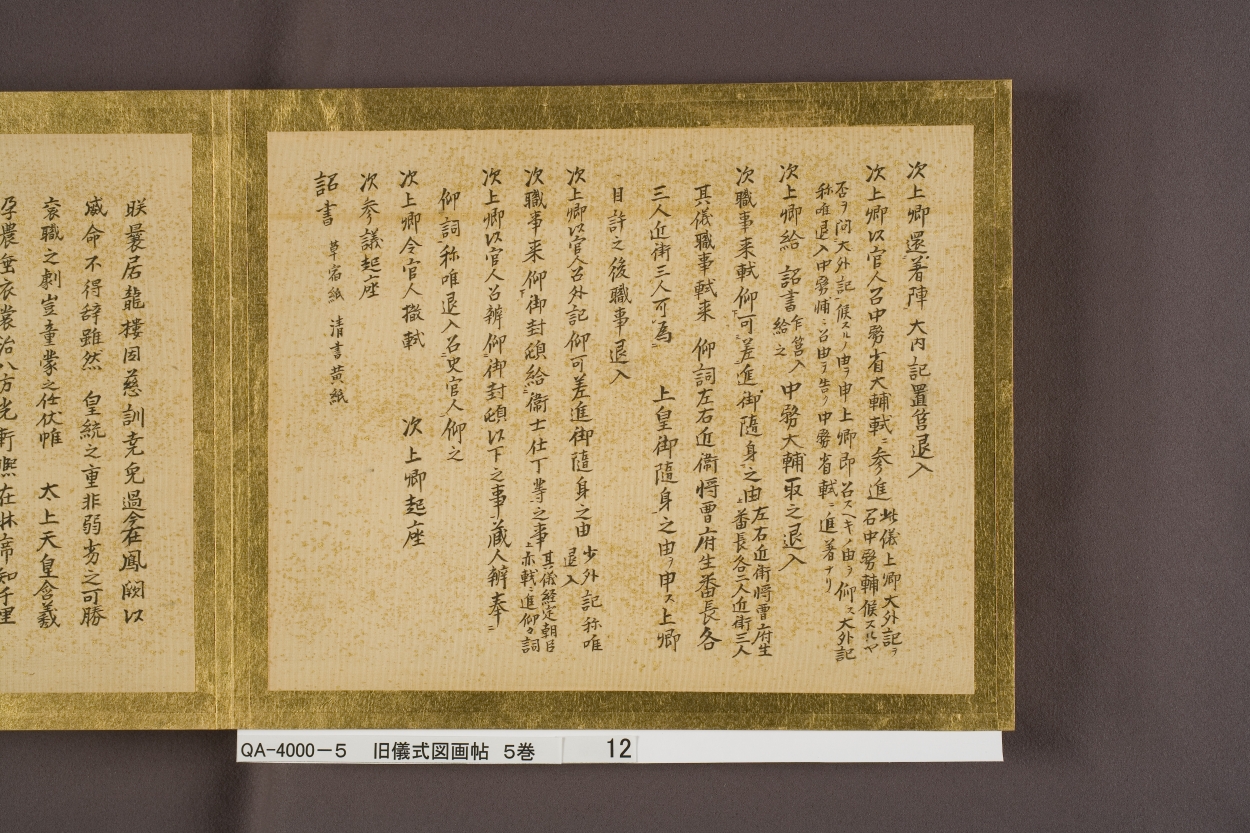 次上卿還着陣 大内記置筥退入
次上卿以官人召中務省大輔軾ニ参進 此儀上卿大外記ヲ
召中務輔候スルヤ
否ヲ問大外記候スルノ由ヲ申上卿即召スヘキノ由ヲ仰ス大外記
称唯退入中務輔ニ召由ヲ告ク中務省軾ニ進着ナリ
次上卿給 詔書 乍筥入
給之 中務大輔取之退入
次職事来軾仰下可差進御随身之由 左右近衛将曹府生
番長各二人近衛三人
其儀職事軾来 仰詞左右近衛将曹府生番長各
三人近衛三人可為 上皇御随身之由ヲ申ス上卿
目許之後職事退入
次上卿以官人召外記仰可差進御随身之由 少外記称唯
退入
次職事来仰下御封頓給衛士仕丁等之事 其儀経定朝臣
亦軾ニ進仰々詞
次上卿以官人召辨仰御封頓以下之事 蔵人辨奉
仰詞称唯退入召史官人仰之
次上卿令官人撤軾 次上卿起座
次参議起座
詔書 草宿紙 清書黄紙
朕曩居龍楼因慈訓免過今在鳳闕以
威命不得辞雖然 皇統之重非弱劣之可勝
袞職之劇豈童蒙之任伏惟 太上天皇含羲
孕農垂衣裳治八方光軒熙在牀席知千里
QA-4000-5 旧儀式図画帖 5巻 12